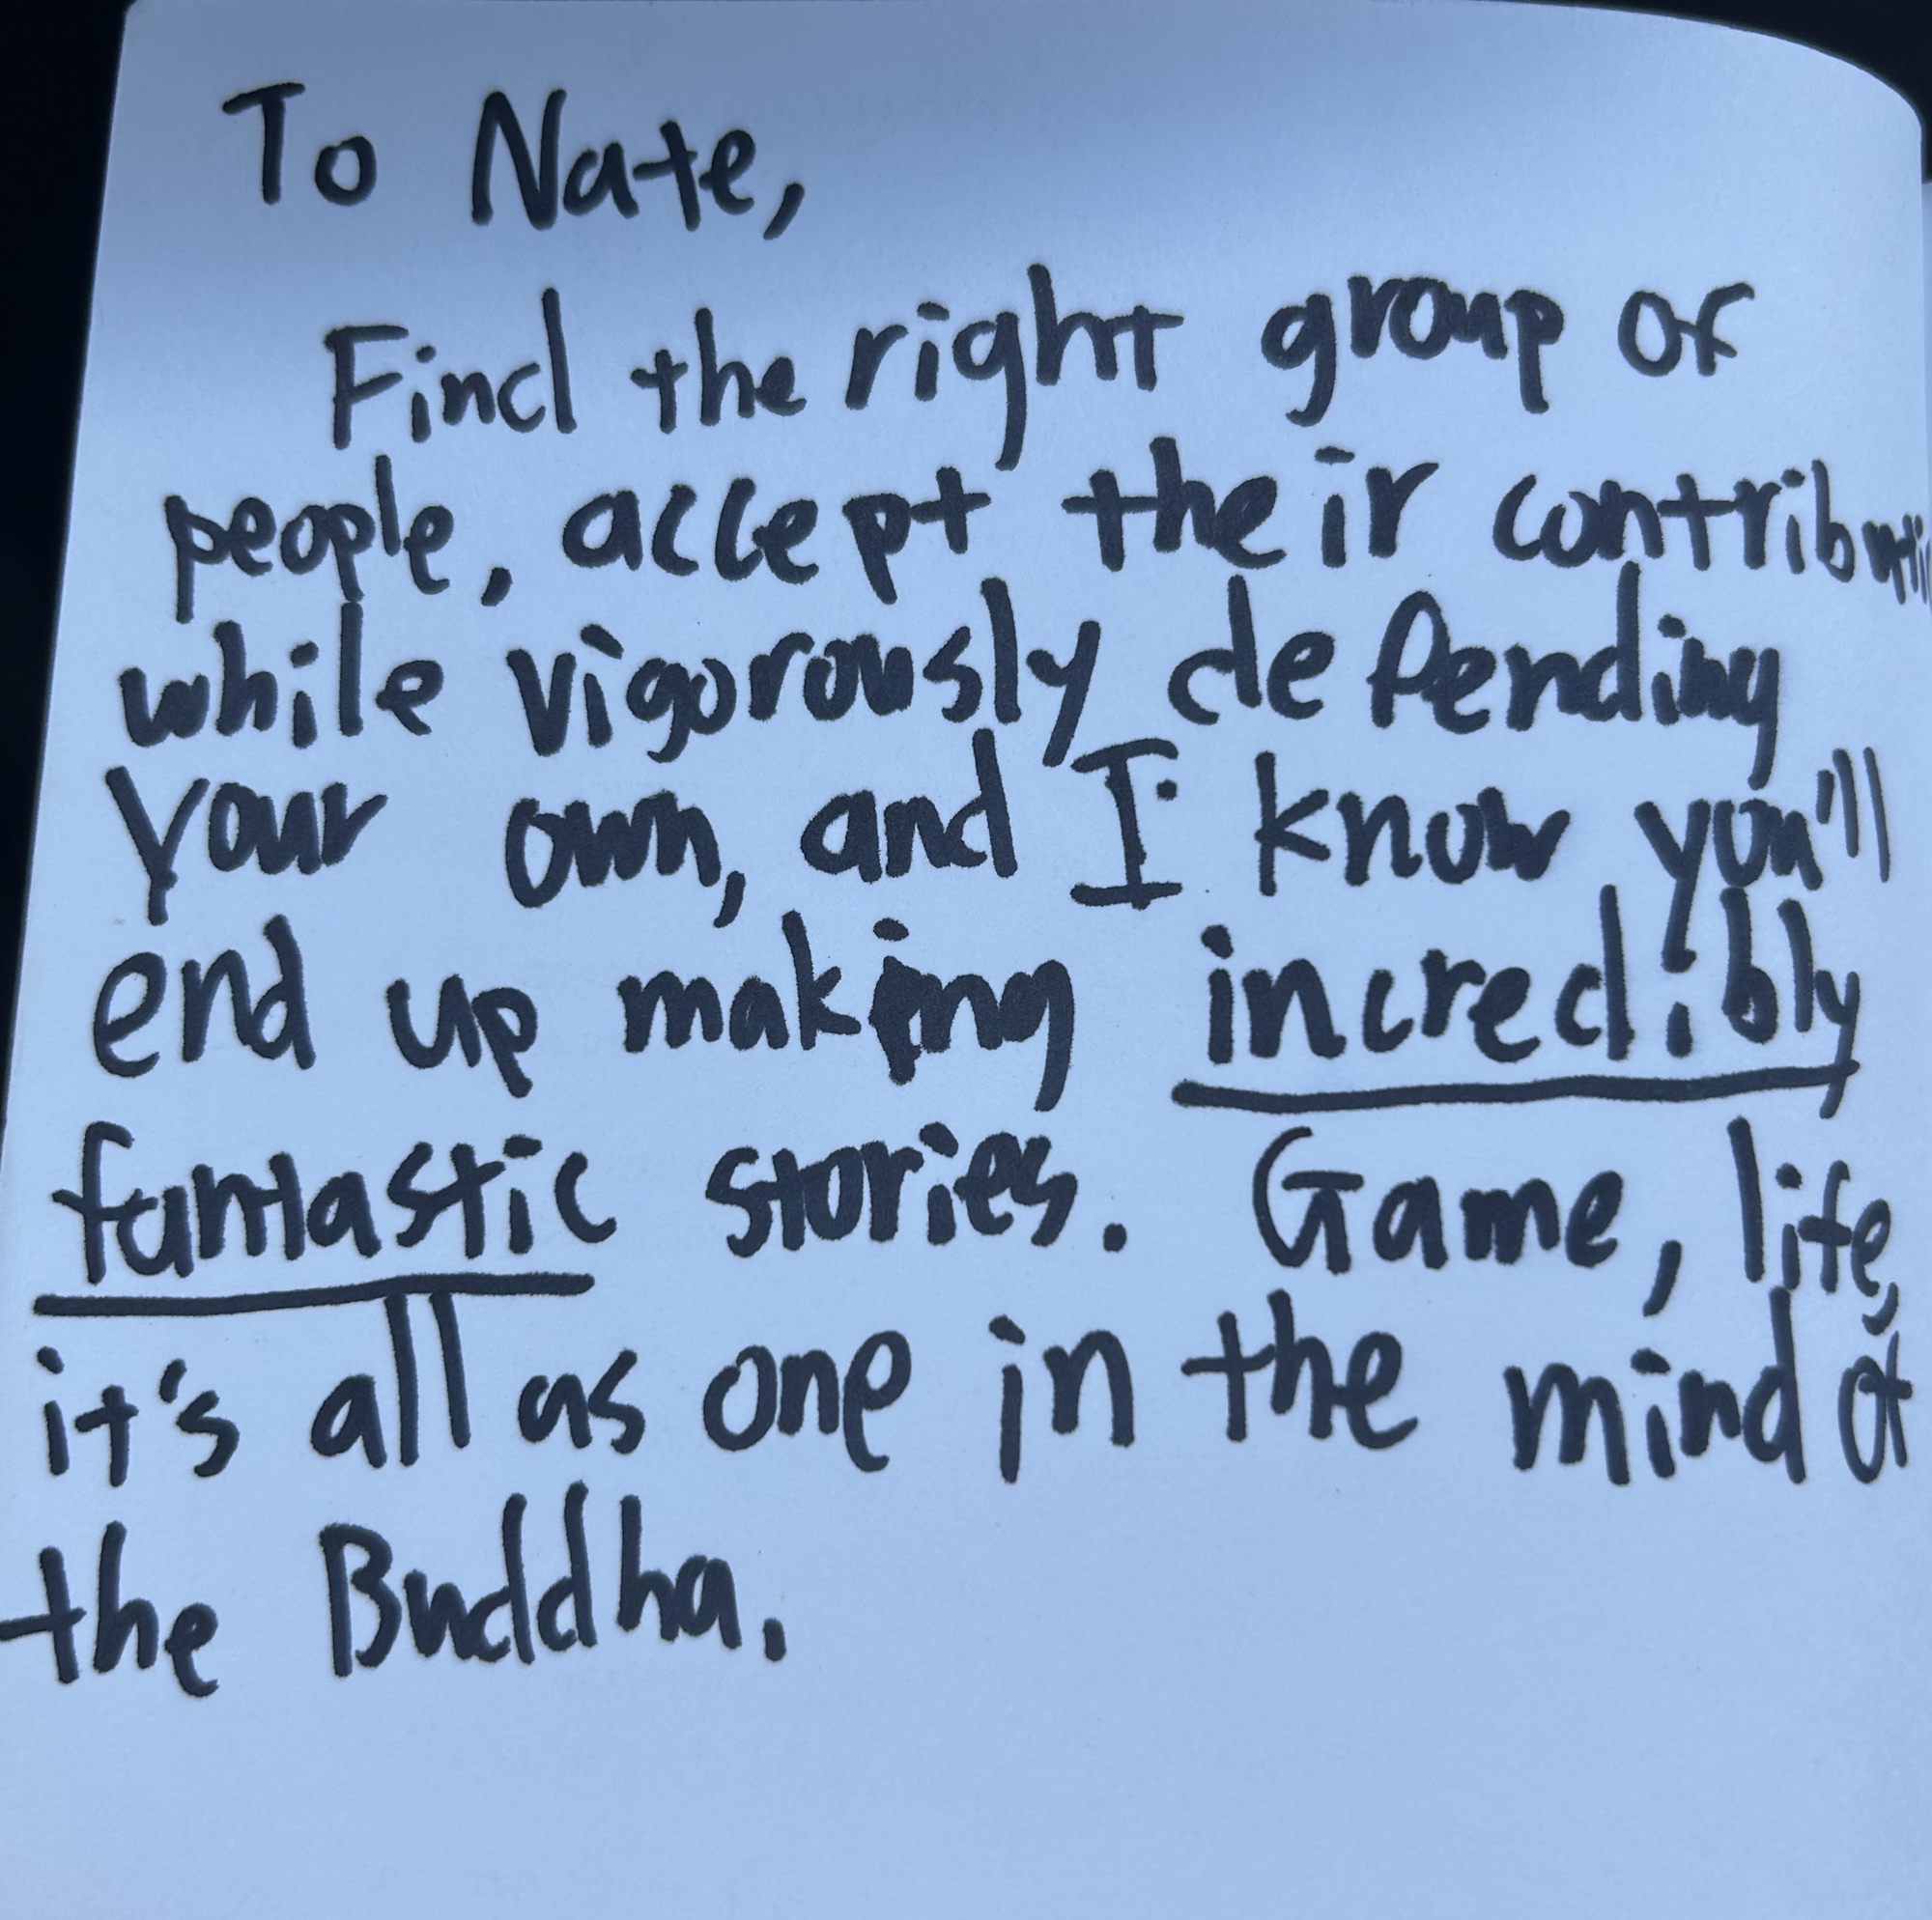 To Nate,
Find the right group of
people, accept their
while vigorously defending
your own, and I know you'll
end up making incredibly
fantastic stories. Game, life,
it's all as one in the mind of
the Buddha.